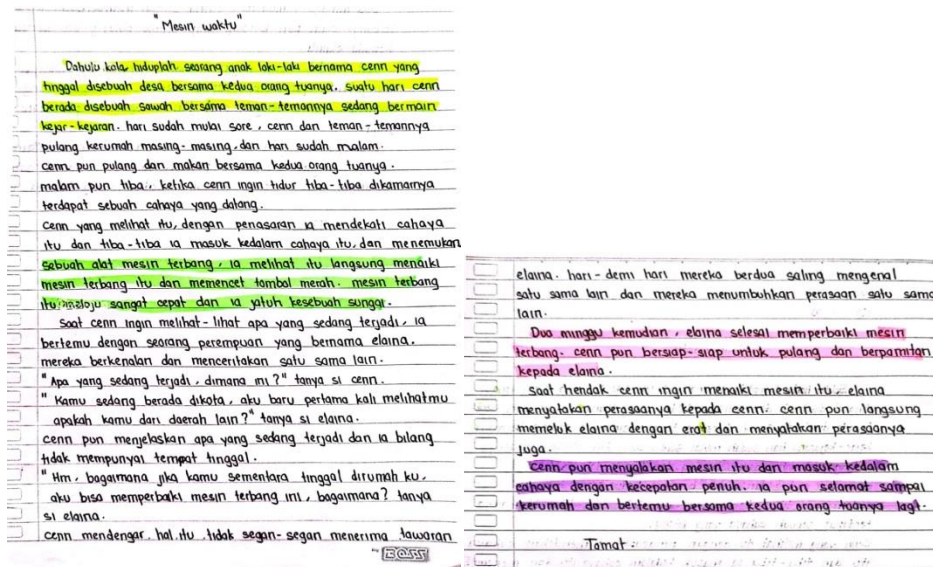 "Mesin waktu"
Dahulu kala hiduplah seorang anak laki-laki bernama cenn yang
tinggal disebuah desa bersama kedua orang tuanya. suatu hari cenn
berada disebuah sawah bersama teman-temannya sedang bermain
kejar-kejaran. hari sudah mulai sore, cenn dan teman-temannya
pulang kerumah masing-masing, dan hari sudah malam.
cenn pun pulang dan makan bersama kedua orang tuanya.
malam pun tiba, ketika cenn ingin tidur tiba-tiba dikamarnya
terdapat sebuah cahaya yang datang.
cenn yang melihat itu, dengan penasaran ia mendekati cahaya
itu dan tiba-tiba ia masuk kedalam cahaya itu, dan menemukan
sebuah alat mesin terbang, ia melihat itu langsung menaiki
mesin terbang itu dan memencet tombol merah. mesin terbang
itu melaju sangat cepat dan ia jatuh kesebuah sungai.
Saat cenn ingin melihat-lihat apa yang sedang terjadi, ia
bertemu dengan seorang perempuan yang bernama elaina.
mereka berkenalan dan menceritakan satu sama lain.
"Apa yang sedang terjadi, dimana ini?" tanya si cenn.
"Kamu sedang berada dikota, aku baru pertama kali melihatmu
apakah kamu dari daerah lain?" tanya si elaina.
cenn pun menjelaskan apa yang sedang terjadi dan ia bilang
tidak mempunyai tempat tinggal.
"Hm, bagaimana jika kamu sementara tinggal dirumah ku,
aku bisa memperbaiki mesin terbang ini, bagaimana? tanya
si elaina.
cenn mendengar hal itu tidak segan-segan menerima tawaran
BOSS
elaina. hari-demi hari mereka berdua saling mengenal
satu sama lain dan mereka menumbuhkan perasaan satu sama
lain.
Dua minggu kemudian, elaina selesai memperbaiki mesin
terbang. cenn pun bersiap-siap untuk pulang dan berpamitan
kepada elaina.
Saat hendak cenn ingin menaiki mesin itu, elaina
menyatakan perasaanya kepada cenn. cenn pun langsung
memeluk elaina dengan erat dan menyatakan perasaanya
juga.
cenn pun menyalakan mesin itu dan masuk kedalam
cahaya dengan kecepatan penuh. ia pun selamat sampai
kerumah dan bertemu bersama kedua orang tuanya lagi.
Tamat.